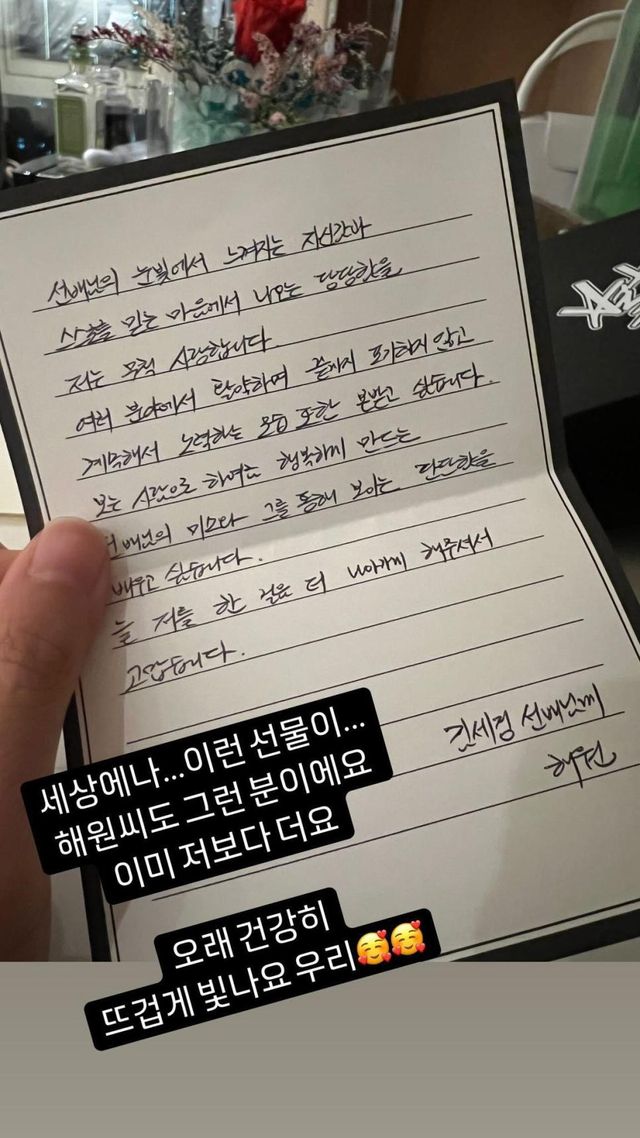 선배님의 눈빛에서 느껴지는 자신감과
스스로를 믿는 마음에서 나오는 당당함을
저는 무척 사랑합니다
여러 분야에서 활약하며 끝까지 포기하지 않고
계속해서 노력하는 모습 또한 본받고 싶습니다.
보는 사람으로 하여금 행복하게 만드는
선배님의 미소와 그를 통해 보이는 단단함을
배우고 싶습니다.
늘 저를 한 걸음 더 나아가게 해주셔서
고맙습니다.
김세정 선배님께
해원
세상에나...이런 선물이...
해원씨도 그런 분이에요
이미 저보다 더요
오래 건강히
뜨겁게 빛나요 우리🥰🥰